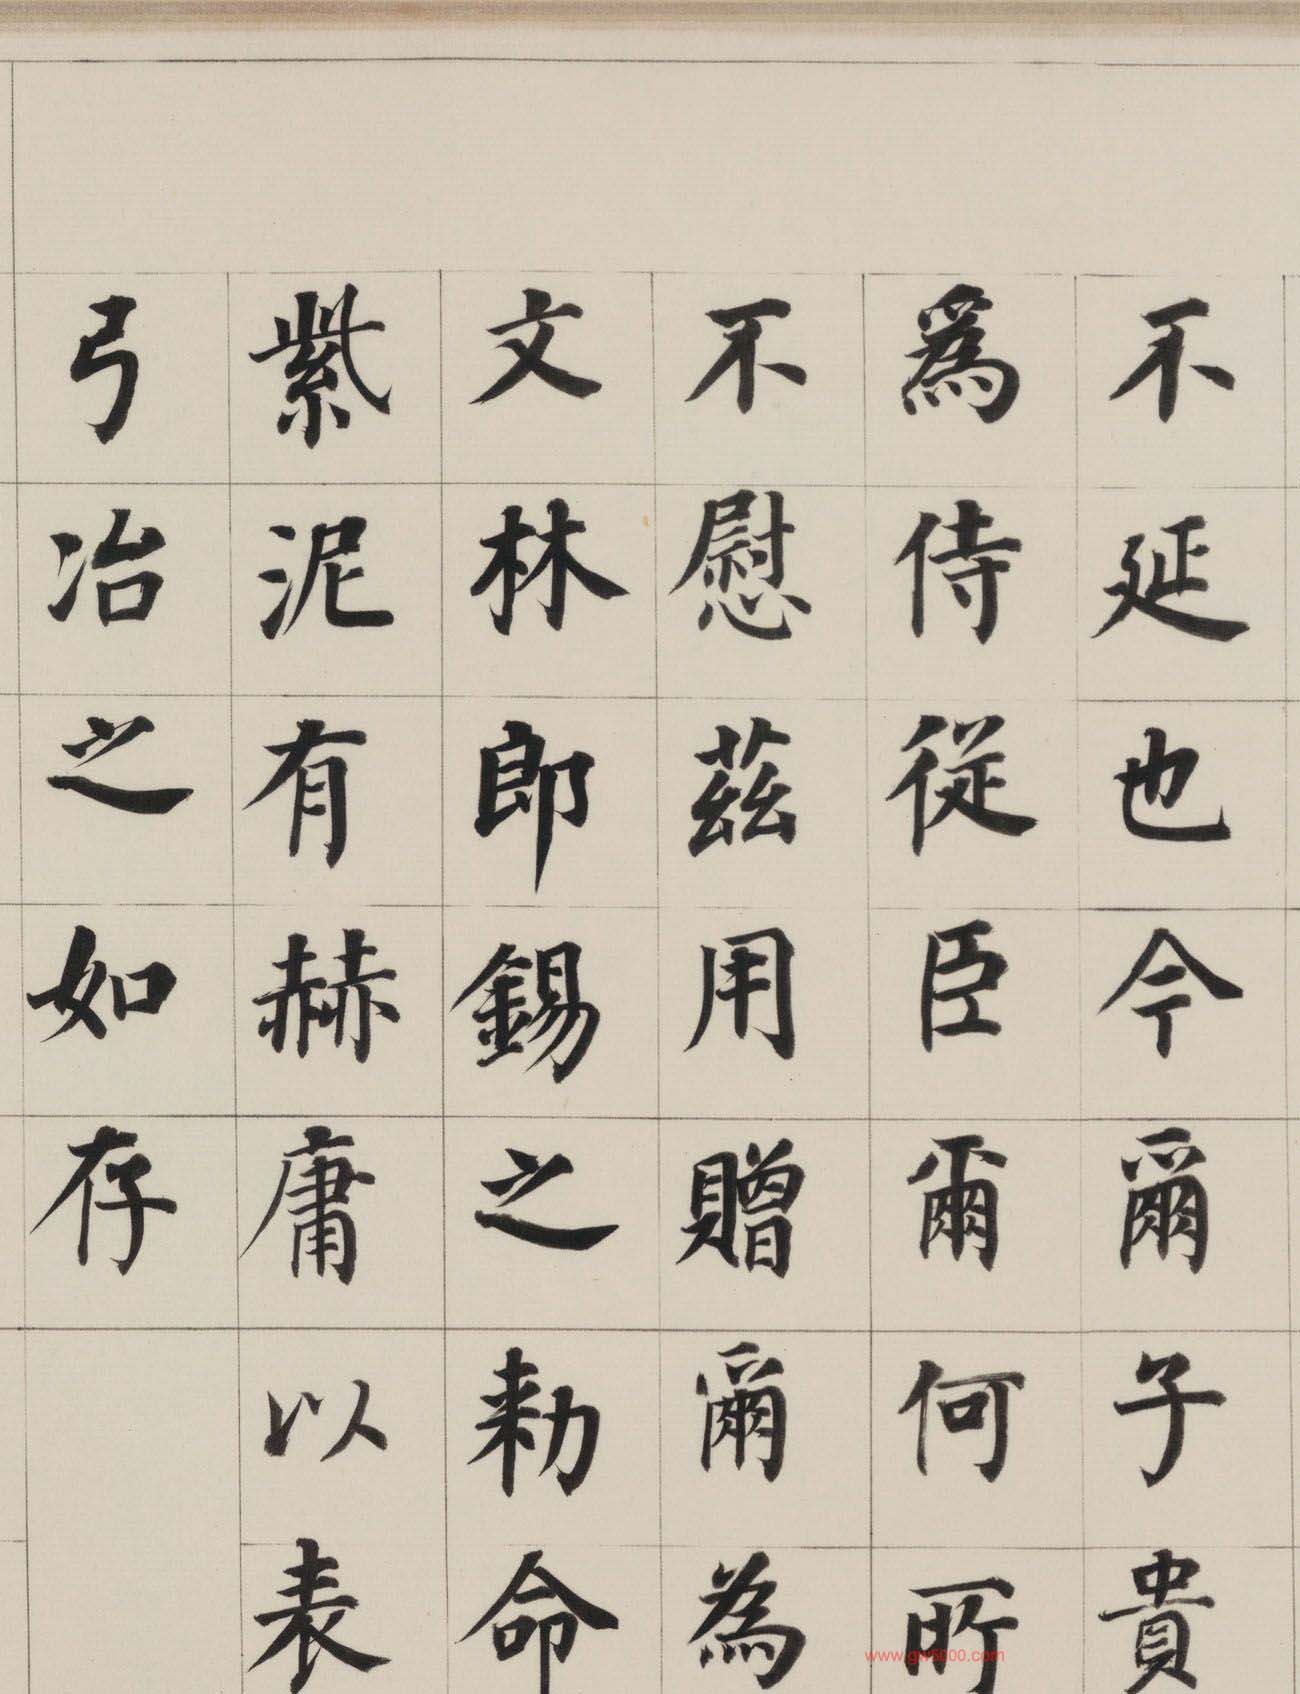 不延也今爾子貴
為侍從臣爾何所
不慰茲用贈爾為
文林郎錫之勑命
紫泥有赫庸以表
弓冶之如存
www.gw5000.com